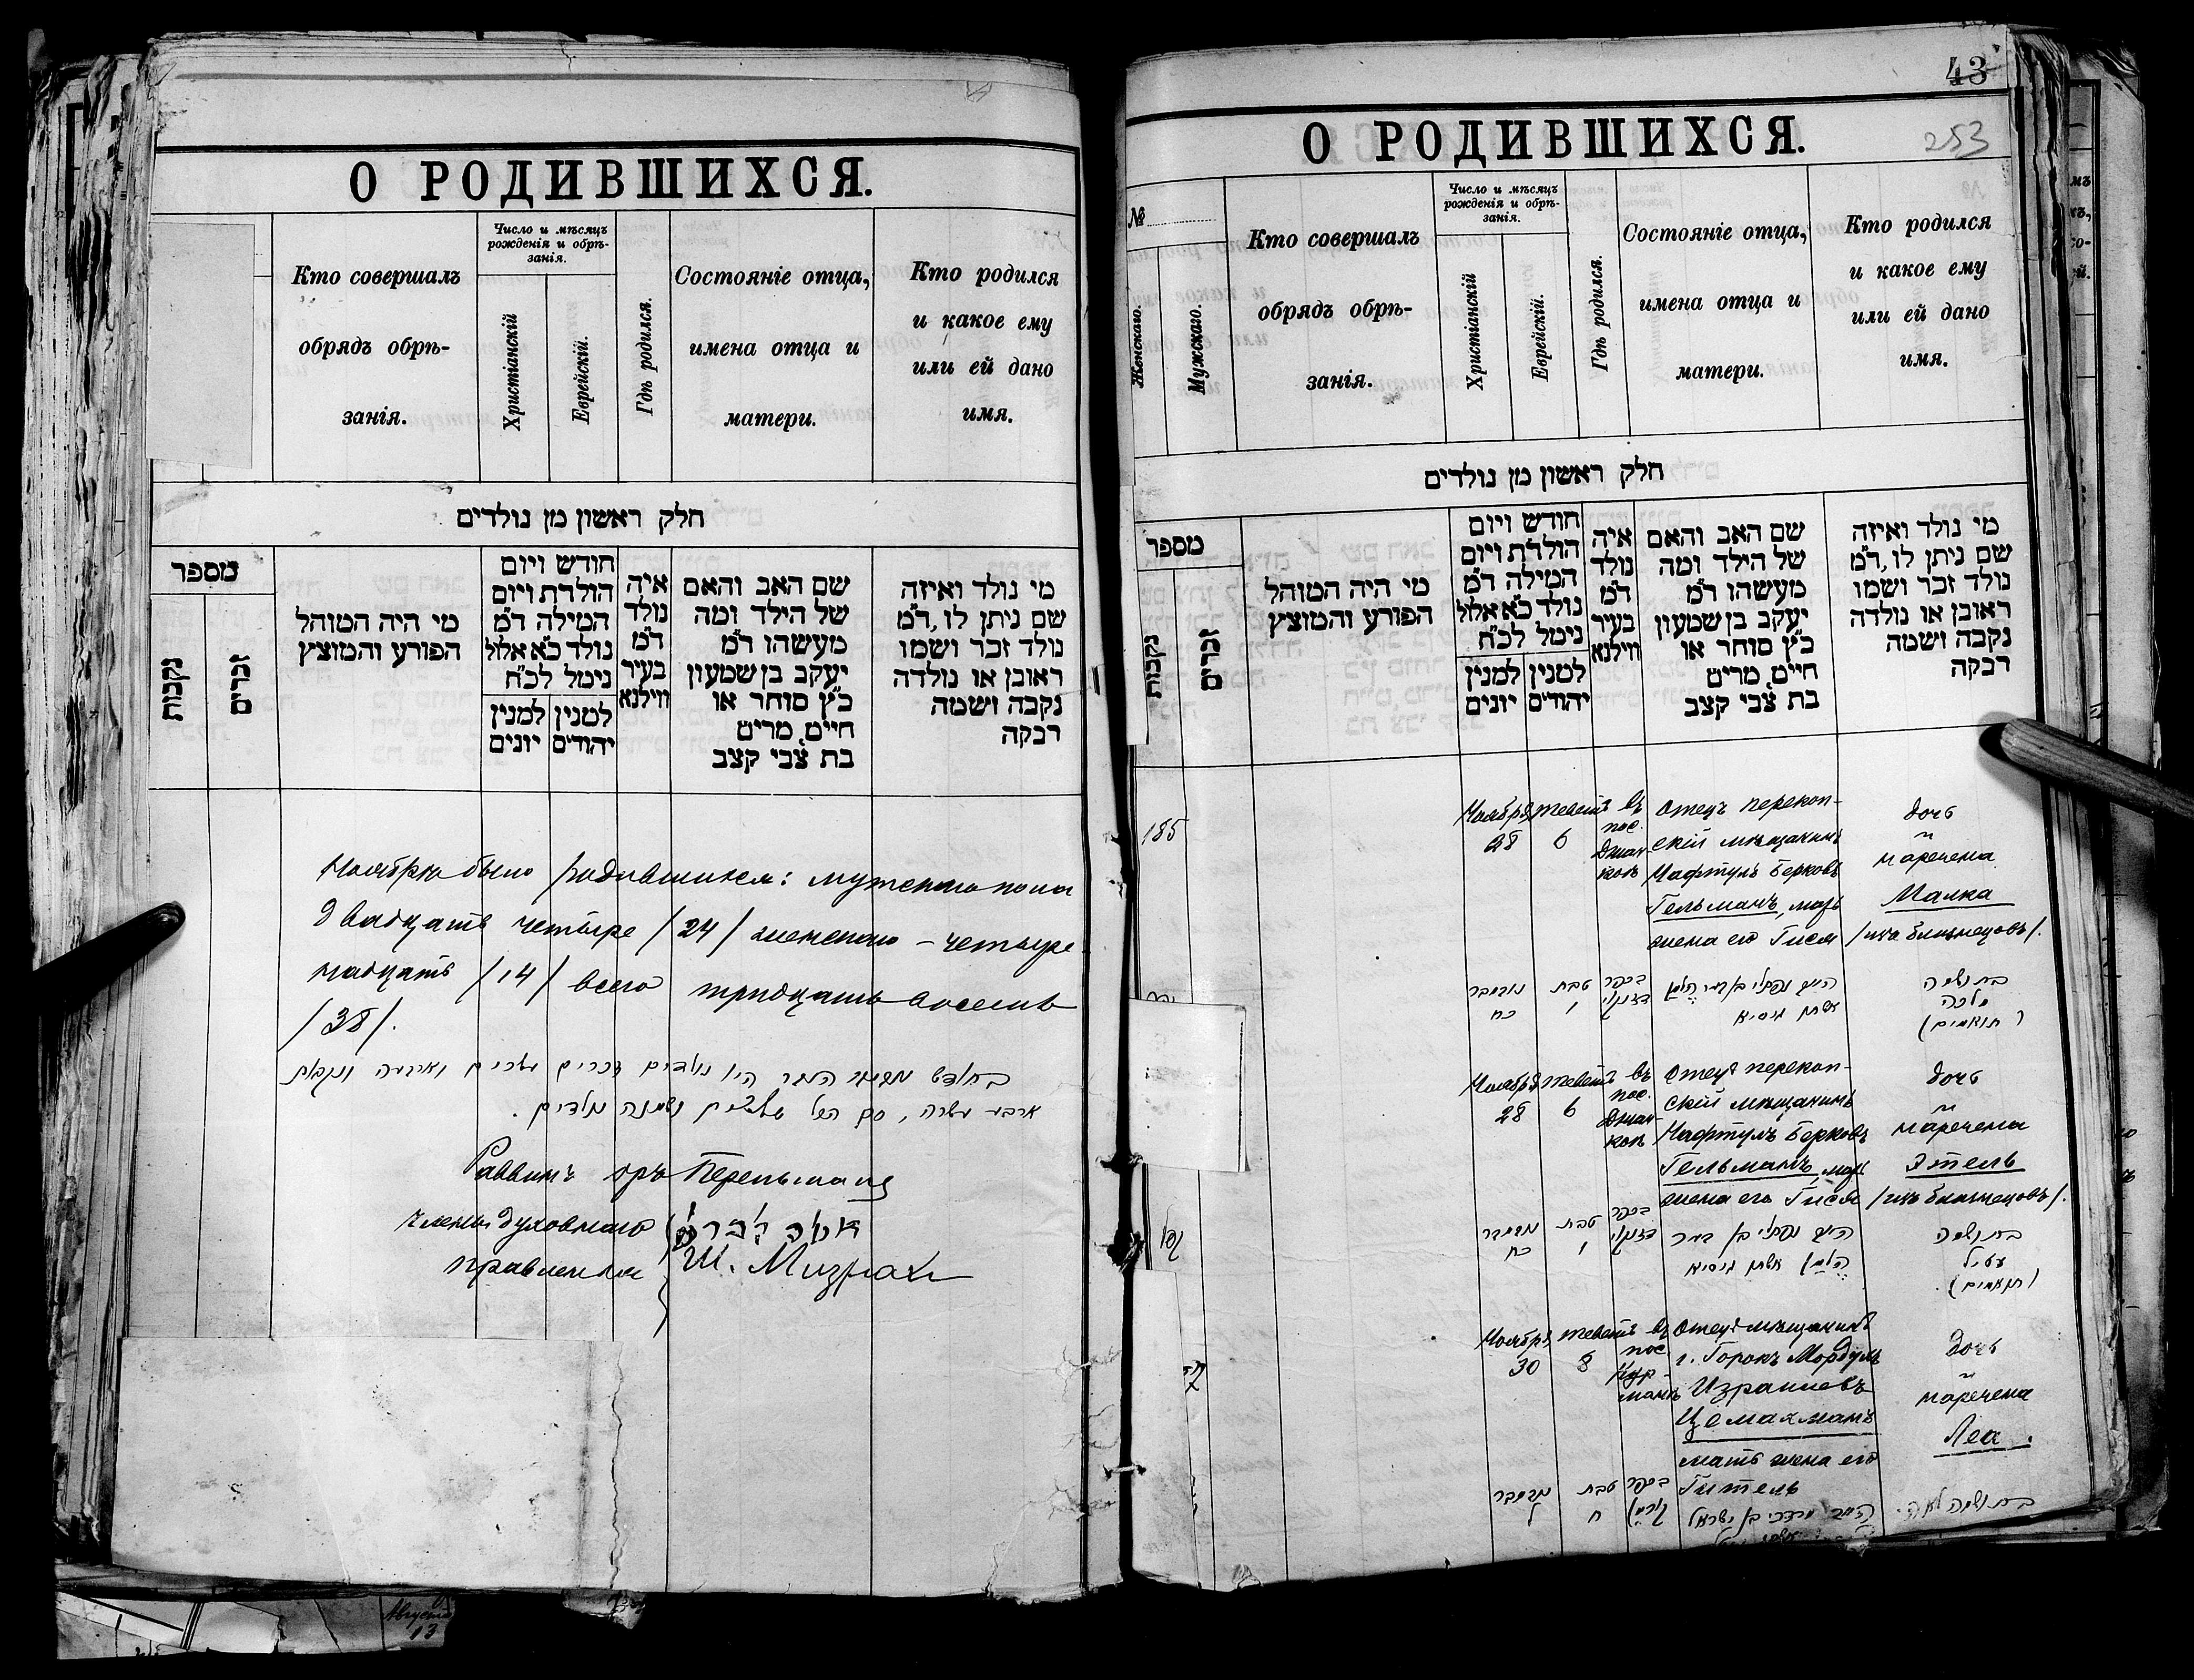 О РОДИВШИХСЯ.
Кто совершалъ
обрядъ обрѣ-
занія.
Число и мѣсяцъ
рожденія и обрѣ-
занія.
Христіанскій
Еврейскій.
Гдѣ родился.
Состояніе отца,
имена отца и
матери.
Кто родился
и какое ему
или ей дано
имя.
חלק ראשון מן נולדים
מספר
נקבות
זכרים
מי היה המוהל
הפורע והמוצץ
חודש ויום
הולדת ויום
המילה ד״מ
נולד כ״א אלול
נימל לכ״ח
למנין יונים
למנין יהודים
איה
נולד
ד״מ
בעיר
ווילנא
שם האב והאם
של הילד ומה
מעשהו ד״מ
יעקב בן שמעון
כ״ץ סוחר או
חיים, מרים
בת צבי קצב
מי נולד ואיזה
שם ניתן לו, ד״מ
נולד זכר ושמו
ראובן או נולדה
נקבה ושמה
רבקה
Ноября было родившихся: мужеского пола
двадцать четыре /24/ женского – четыре
надцать /14/ всего тридцать восемь
/38/.
בחודש נאוועמבר היו נולדים זכרים עשרים וארבעה ונקבות
ארבע עשרה, סך הכל שלשים ושמנה נולדים.
Раввинъ
Члены духовнаго
правленія
Ш. Мизрахи
43
253
О РОДИВШИХСЯ.
№
Женскаго.
Мужскаго.
Кто совершалъ
обрядъ обрѣ-
занія.
Число и мѣсяцъ
рожденія и обрѣ-
занія.
Христіанскій
Еврейскій.
Гдѣ родился.
Состояніе отца,
имена отца и
матери.
Кто родился
и какое ему
или ей дано
имя.
חלק ראשון מן נולדים
מספר
נקבות
זכרים
מי היה המוהל
הפורע והמוצץ
חודש ויום
הולדת ויום
המילה ד״מ
נולד כ״א אלול
נימל לכ״ח
למנין יונים
למנין יהודים
איה
נולד
ד״מ
בעיר
ווילנא
שם האב והאם
של הילד ומה
מעשהו ד״מ
יעקב בן שמעון
כ״ץ סוחר או
חיים, מרים
בת צבי קצב
מי נולד ואיזה
שם ניתן לו, ד״מ
נולד זכר ושמו
ראובן או נולדה
נקבה ושמה
רבקה
185
Ноября
28
Тевета
6
въ
пос.
Джан-
кой
Отецъ перекоп-
скій мѣщанинъ
Нафтулъ Берковъ
Гельманъ, мать
жена его Гися
дочь
наречена
Малка
/изъ близнецовъ/.
נאוועמבר
כח
טבת
ו
בת ושמה
מלכה
(תואמים)
Ноября
28
Тевета
6
въ
пос.
Джан-
кой
Отецъ перекоп-
скій мѣщанинъ
Нафтулъ Берковъ
Гельманъ, мать
жена его Гися
дочь
наречена
Этель
/изъ близнецовъ/.
נאוועמבר
כח
טבת
ו
בת ושמה
עטיל
(תואמים).
Ноября
30
Тевета
8
въ
пос.
Кур-
манъ
Отецъ мѣщанинъ
г. Горокъ Мордухъ
Израилевъ
Цемахманъ
мать жена его
Гитель
дочь
наречена
Леа.
נאוועמבר
ל
טבת
ח
מרדכי בן ישראל
בת ושמה לאה.
Августа
13